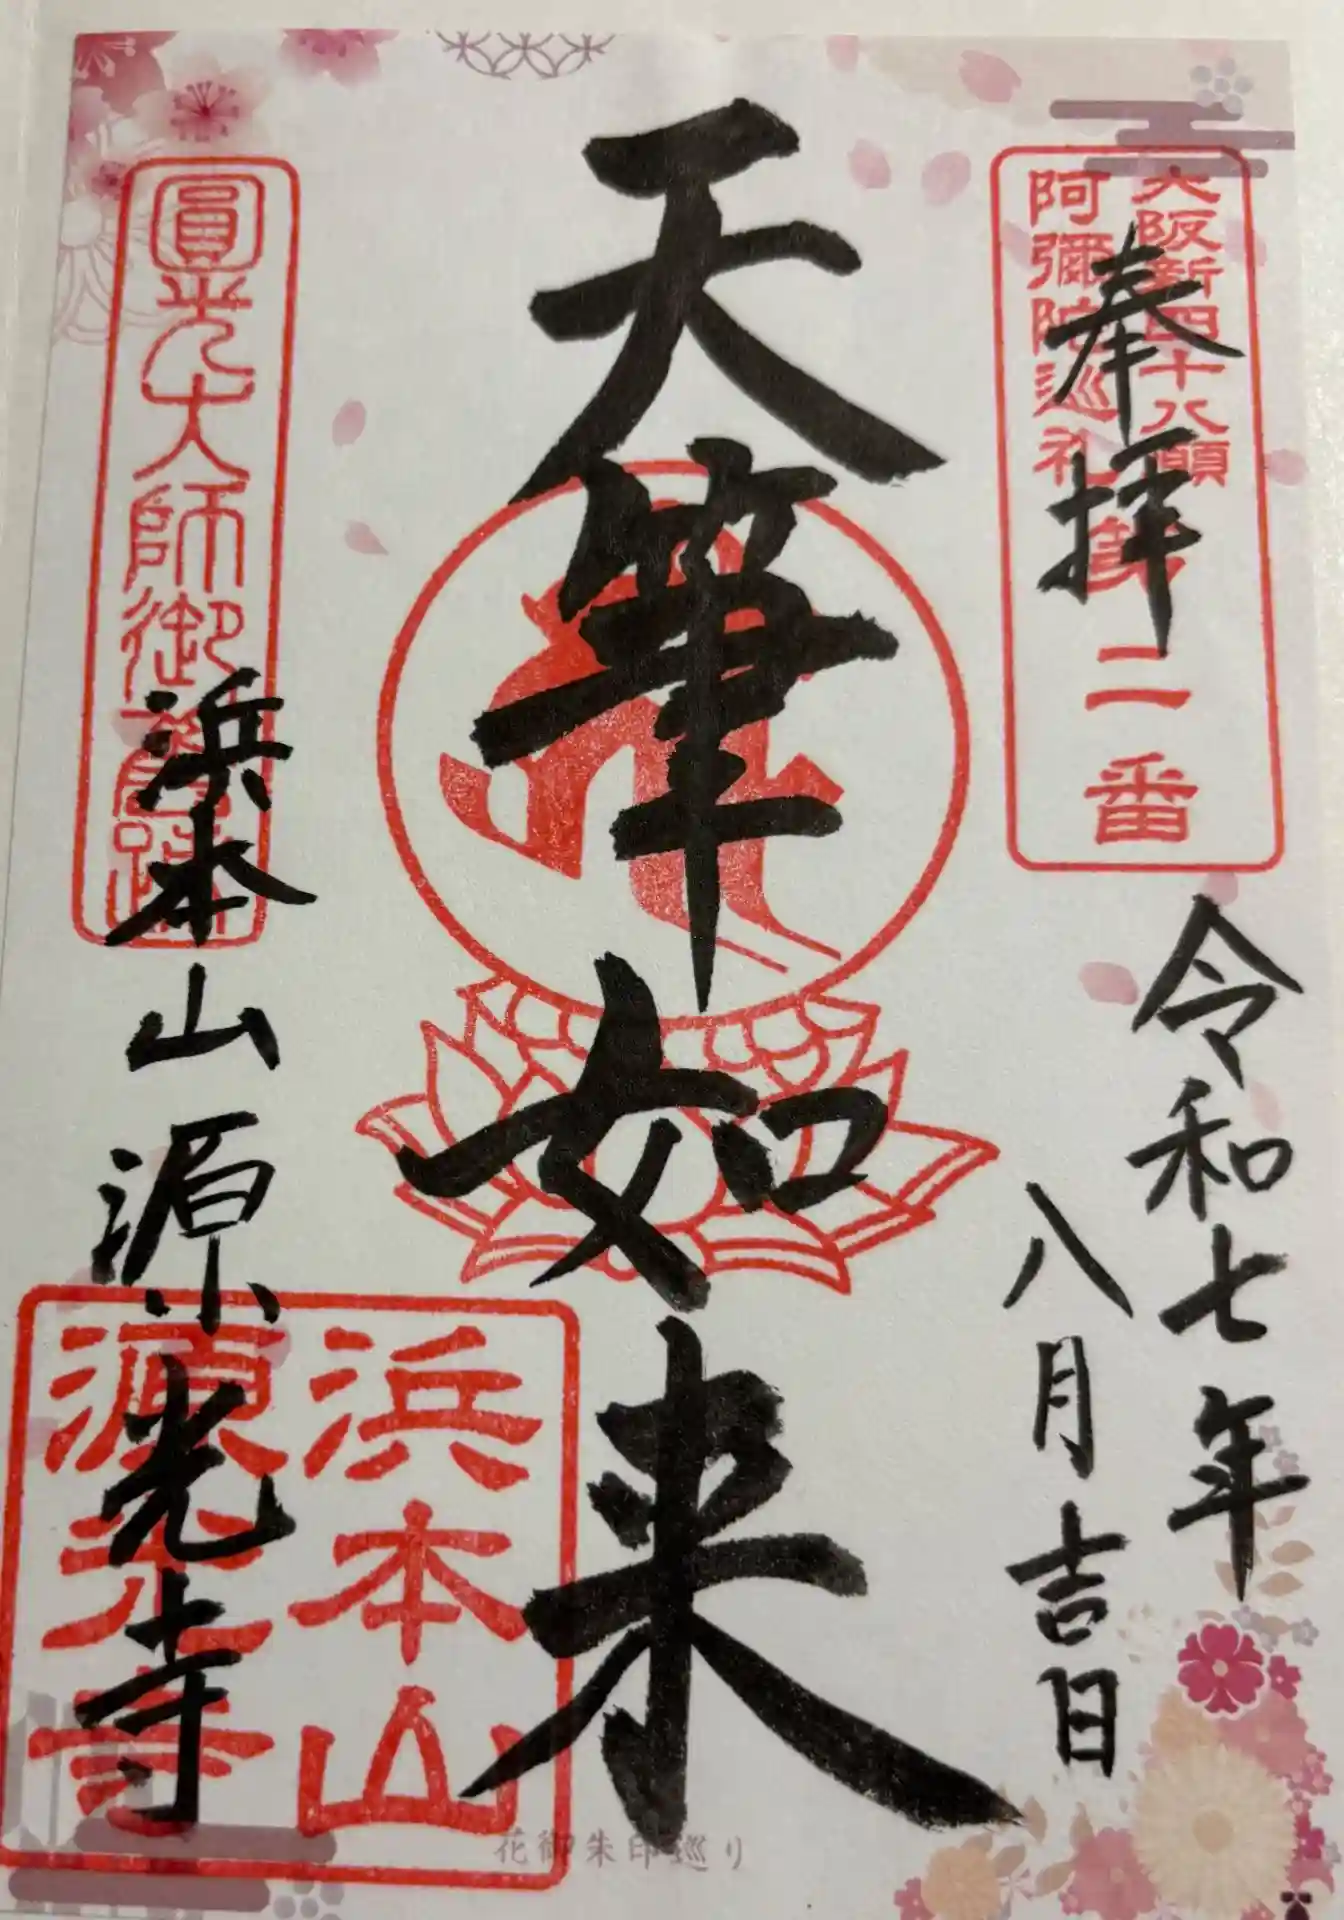 大阪新四十八願
阿彌陀巡礼
第二番
奉拝
令和七年
八月吉日
天筆如来
圓光大師御舊跡
浜本山源光寺
浜本山
源光寺
花御朱印巡り